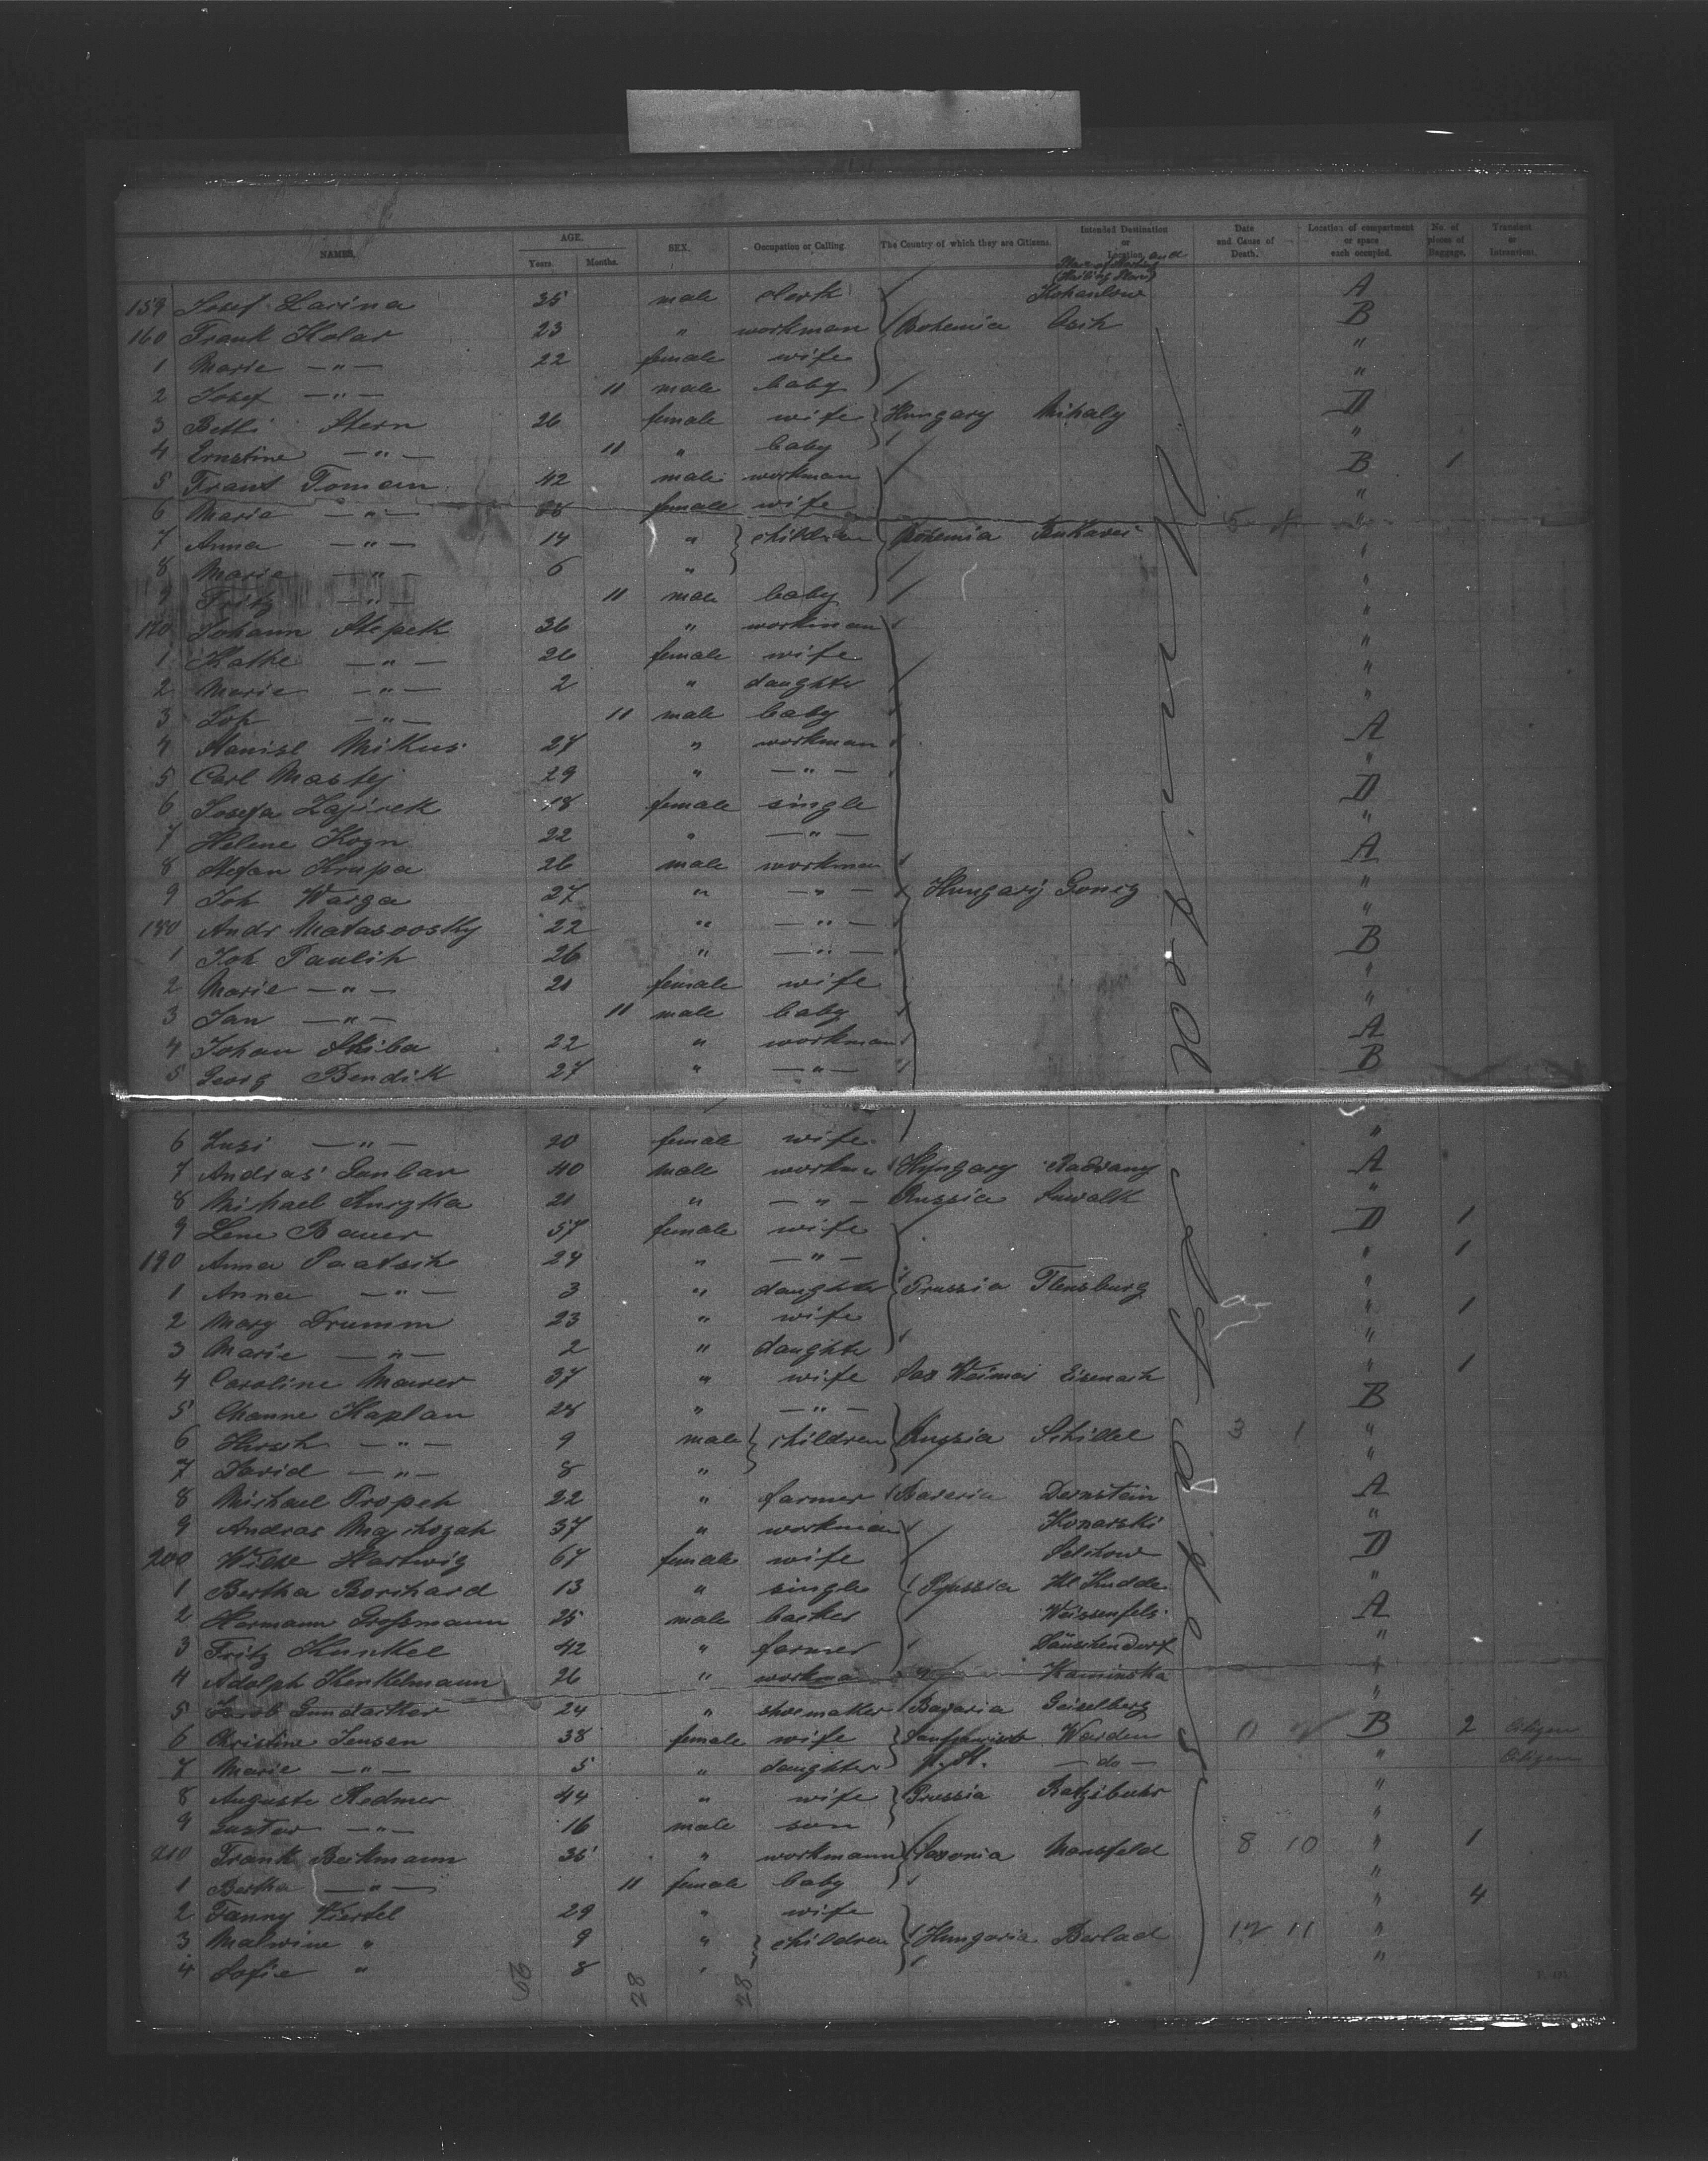 NAMES. AGE. Years. Months. SEX. Occupation or Calling. The Country of which they are Citizens. Intended Destination or Location, and Date and Cause of Death. Location of compartment or space each occupied. No. of pieces of Baggage. Transient or Intransient.
159 Josef Larina 35 male clerk A
160 Frank Kolar 23 " workman Bohemia B
1 Marie —"— 22 female wife "
2 Josef —"— 11 male baby "
3 Betti Stern 26 female wife Hungary Mihaly D
4 Ernstine —"— 11 " baby "
5 Franz Toman 42 male workman B 1
6 Marie —"— female wife "
7 Anna —"— 14 " children Bohemia 5 4 "
8 Marie —"— 6 "
9 Fritz —"— 11 male baby "
170 Johann Stepek 36 " workman "
1 Kathe —"— 26 female wife "
2 Marie —"— 2 " daughter "
3 Joh —"— 11 male baby "
4 Stanisl Mikus 27 " workman A
5 Carl Mastej 29 " —"— "
6 Josefa Zajicek 18 female single D
7 Helene Kogn 22 " —"— "
8 Stefan Krupa 26 male workman A
9 Joh Warga 27 " —"— Hungary Goncz "
180 Andr Matasoosky 22 " —"— "
1 Joh Paulih 26 " —"— B
2 Marie —"— 20 female wife "
3 Jan —"— 11 male baby "
4 Johan Skiba 22 " workman A
5 Georg Bendik 27 " —"— B
6 Zusi —"— 20 female wife "
7 Andras Ganbar 40 male workman Hungary Radvany A
8 Michael 20 " —"— Russia Suwalk "
9 Lene Bauer 57 female wife D 1
190 Anna Paatsch 24 " —"— " 1
1 Anna —"— 3 " daughter Prussia Flensburg "
2 Mary Drumm 23 " wife " 1
3 Marie —"— 2 " daughter "
4 Caroline Maurer 37 " wife Sax Weimar Eisenach " 1
5 Channe Kaplan 28 " —"— B
6 Hirsch —"— 9 male children Russia Schillel 3 1 "
7 David —"— 8 " "
8 Michael Propeh 22 " farmer Bavaria Dernstein A
9 Andras 37 " workman Konarski "
200 Wilke Hartwig 67 female wife Selchow D
1 Bertha Borchard 13 " single Prussia Kl Kudde "
2 Hermann Großmann 25 male backer Weissenfels A
3 Fritz Kunkel 42 " farmer "
4 Adolph Henkelmann 26 " workman Kaminska "
5 Jacob Gundacker 24 " shoemaker Bavaria Geiselberg "
6 Christine Jensen 38 female wife Warden 0 2 B 2 Citizen
7 Marie —"— 5 " daughter —do— " Citizen
8 Auguste Redmer 44 " wife Prussia Ratzebuhr "
9 Gustav —"— 16 male son "
210 Frank Beikmann 35 " workmann Saxonia Mansfeld 8 10 " 1
1 Bertha —"— 11 female baby "
2 Fanny Viertel 29 " wife " 4
3 Malwine " 9 " children Hungaria Berlad 12 11 "
4 Sofie " 8 " "
66 28 28